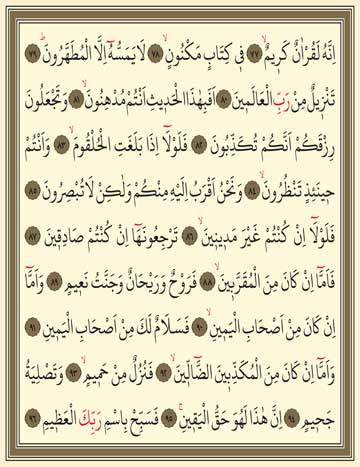 اِنَّهُ لَقُرْاٰنٌ كَر۪يمٌۙ ﴿٧٧﴾ ف۪ي كِتَابٍ مَكْنُونٍۙ ﴿٧٨﴾ لَا يَمَسُّهُٓ اِلَّا الْمُطَهَّرُونَۜ ﴿٧٩﴾
تَنْز۪يلٌ مِنْ رَبِّ الْعَالَم۪ينَ ﴿٨٠﴾ اَفَبِهٰذَا الْحَد۪يثِ اَنْتُمْ مُدْهِنُونَۙ ﴿٨١﴾ وَتَجْعَلُونَ
رِزْقَكُمْ اَنَّكُمْ تُكَذِّبُونَ ﴿٨٢﴾ فَلَوْلَٓا اِذَا بَلَغَتِ الْحُلْقُومَۙ ﴿٨٣﴾ وَاَنْتُمْ
ح۪ينَئِذٍ تَنْظُرُونَۙ ﴿٨٤﴾ وَنَحْنُ اَقْرَبُ اِلَيْهِ مِنْكُمْ وَلٰكِنْ لَا تُبْصِرُونَ ﴿٨٥﴾
فَلَوْلَٓا اِنْ كُنْتُمْ غَيْرَ مَد۪ين۪ينَۙ ﴿٨٦﴾ تَرْجِعُونَهَٓا اِنْ كُنْتُمْ صَادِق۪ينَ ﴿٨٧﴾
فَاَمَّٓا اِنْ كَانَ مِنَ الْمُقَرَّب۪ينَۙ ﴿٨٨﴾ فَرَوْحٌ وَرَيْحَانٌ وَجَنَّتُ نَع۪يمٍ ﴿٨٩﴾ وَاَمَّٓا
اِنْ كَانَ مِنْ اَصْحَابِ الْيَم۪ينِۙ ﴿٩٠﴾ فَسَلَامٌ لَكَ مِنْ اَصْحَابِ الْيَم۪ينِ ﴿٩١﴾
وَاَمَّٓا اِنْ كَانَ مِنَ الْمُكَذِّب۪ينَ الضَّٓالّ۪ينَۙ ﴿٩٢﴾ فَنُزُلٌ مِنْ حَم۪يمٍۙ ﴿٩٣﴾ وَتَصْلِيَةُ
جَح۪يمٍ ﴿٩٤﴾ اِنَّ هٰذَا لَهُوَ حَقُّ الْيَق۪ينِۚ ﴿٩٥﴾ فَسَبِّحْ بِاسْمِ رَبِّكَ الْعَظ۪يمِ ﴿٩٦﴾